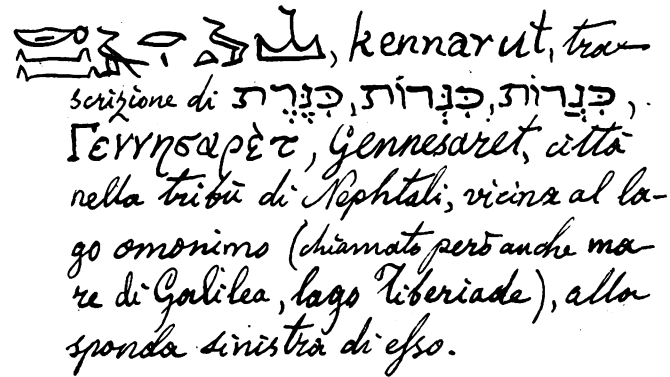 , kennarut, tra-
scrizione di כִּנֶּרֶת, כִּנְּרוֹת, כִּנֲרוֹת,
Γεννησαρὲτ, Gennesaret, città
nella tribù di Nephtali, vicina al la-
go omonimo (chiamato però anche ma-
re di Galilea, lago Tiberiade), alla
sponda sinistra di esso.